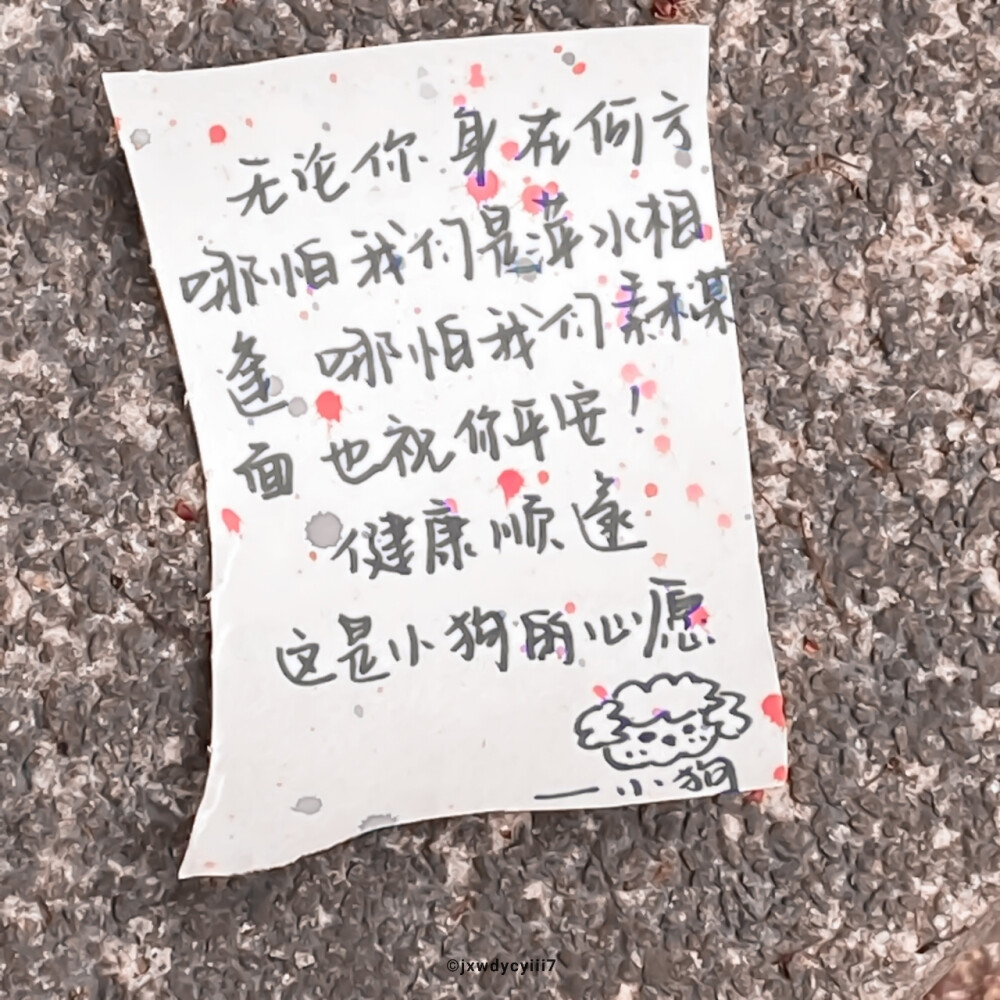 无论你身在何方
哪怕我们是萍水相
逢 哪怕我们素未谋
面 也祝你平安！
健康顺遂
这是小狗的心愿
——小狗
©jxwdycyiii7